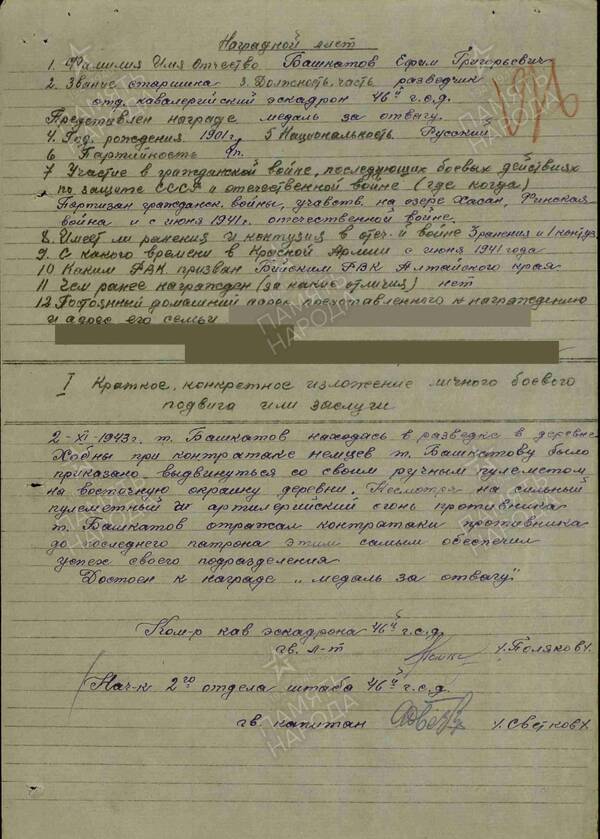 Наградной лист
1. Фамилия Имя Отчество Башкатов Ефим Григорьевич
2. Звание старшина 3. Должность, часть разведчик
отд. кавалергийский эскадрон 46й г.с.д.
Представлен награде медаль за отвагу.
4. Год. рождения 1901 г. 5 Национальность Русский
6 Партийность
7 Участие в гражданской войне, последующих боевых действиях
по защете СССР и отечественной войне (где когда)
Партизан гражданск. войны, учавств. на озере Хасан, Финская
война и с июня 1941 г. отечественной войне.
8. Имеет ли ранения и контузия в отеч-й войне 3 ранения и 1 контуз
9. С какого времени в Красной Армии с июня 1941 года
10 Каким РВК призван Бийским РВК Алтайского края
11 Чем ранее награжден (за какие отличия) нет
12. Постоянный домашний адрес представленного к награждению
и адрес его семьи
I Краткое, конкретное изложение личного боевого
подвига или заслуги
2-XI-1943 г. т. Башкатов находясь в разведке в деревне
Хобны при контратаке немцев т. Башкатову было
приказано выдвинуться со своим ручным пулеметом
на восточную окраину деревни. Несмотря на сильный
пулеметный и артилерийский огонь противника
т. Башкатов отражал контратаки противника
до последнего патрона этим самым обеспечил
успех своего подразделения
Достоен к награде „медаль за отвагу"
Ком-р кав эскадрона 46й г.с.д.
гв. л-т /Поляков/
Нач-к 2го отдела штаба 46й г.с.д.
гв. капитан /Светков/
ПАМЯТЬ НАРОДА